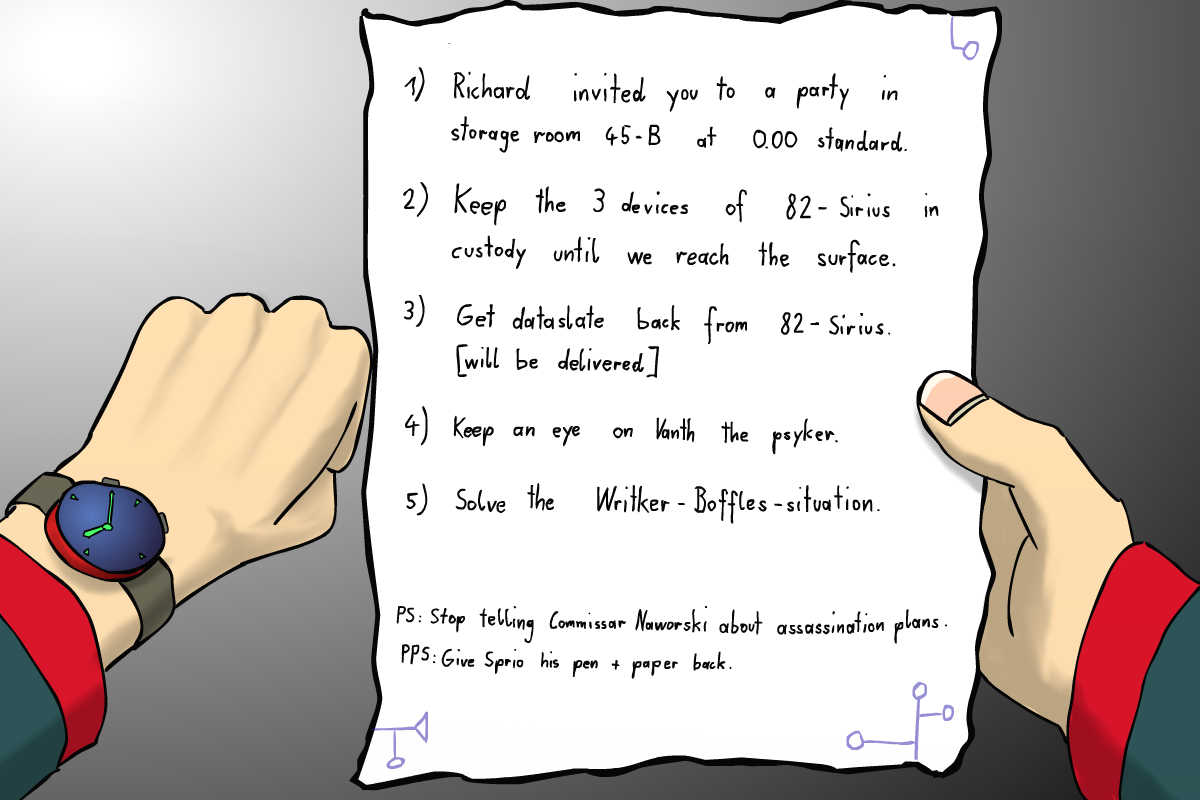 1) Richard invited you to a party in
storage room 45-B at 0.00 standard.
2) Keep the 3 devices of 82-Sirius in
custody until we reach the surface.
3) Get dataslate back from 82-Sirius.
[will be delivered]
4) Keep an eye on Vanth the psyker.
5) Solve the Writker-Boffles-situation.
PS: Stop telling Commissar Naworski about assassination plans.
PPS: Give Sprio his pen + paper back.